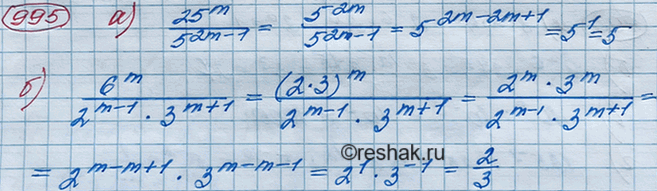 995 а) 25^m / 5^(2m-1) = 5^(2m) / 5^(2m-1) = 5^(2m-2m+1) = 5^1 = 5
б) 6^m / (2^(m-1) · 3^(m+1)) = (2·3)^m / (2^(m-1) · 3^(m+1)) = (2^m · 3^m) / (2^(m-1) · 3^(m+1)) =
= 2^(m-m+1) · 3^(m-m-1) = 2^1 · 3^(-1) = 2/3
©reshak.ru